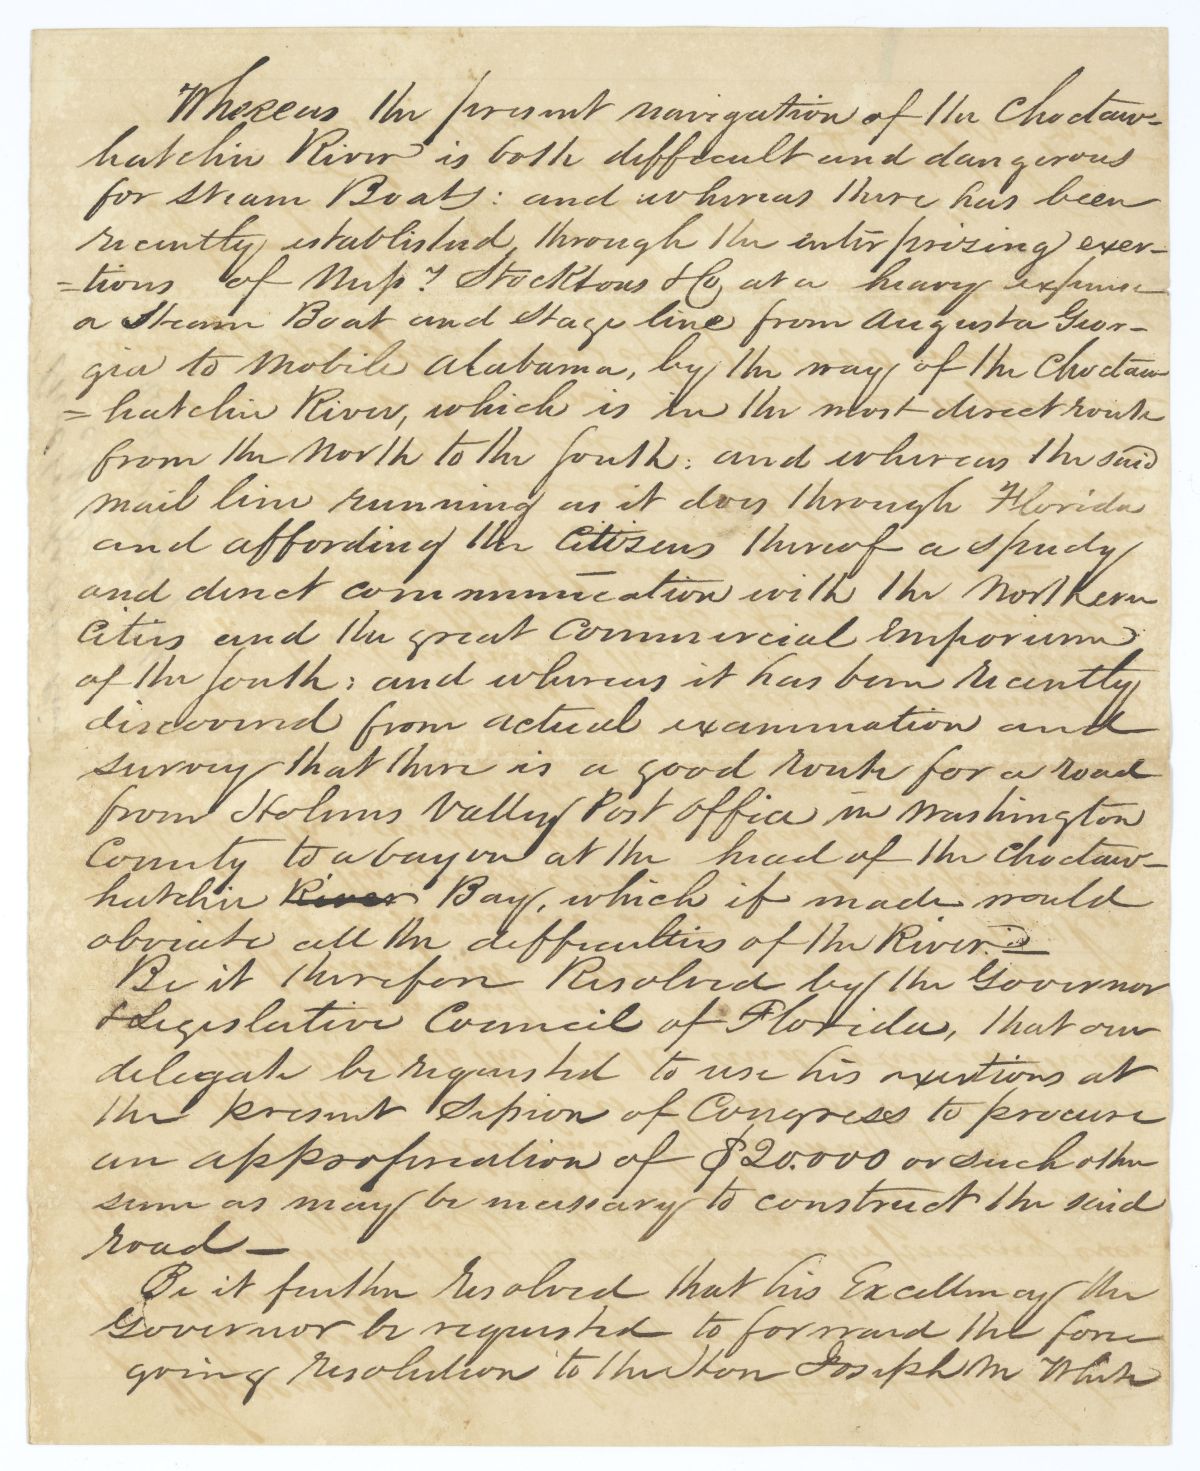 Whereas the present navigation of the Choctaw-
hatchie River is both difficult and dangerous
for steam Boats: and whereas there has been
recently established, through the enterprizing exer-
=tions of Messrs Stocktons & Co, at a heavy expense
a Steam Boat and Stage line from Augusta Geor-
gia to Mobile Alabama, by the way of the Choctaw
=hatchie River, which is in the most direct route
from the North to the South: and whereas the said
mail line running as it does through Florida
and affording the Citizens thereof a speedy
and direct communication with the Northern
Cities and the great Commercial Emporium
of the South: and whereas it has been recently
discovered from actual examination and
survey that there is a good route for a road
from Holmes Valley Post Office in Washington
County to a bayou at the head of the Choctaw-
hatchie River Bay, which if made would
obviate all the difficulties of the River:
Be it therefore Resolved by the Governor
& Legislative Council of Florida, that our
delegate be requested to use his exertions at
the present Session of Congress to procure
an appropriation of $20.000 or such other
sum as may be necessary to construct the said
road—
Be it further resolved that his Excellency the
Governor be requested to forward the fore
going resolution to the Hon Joseph M White